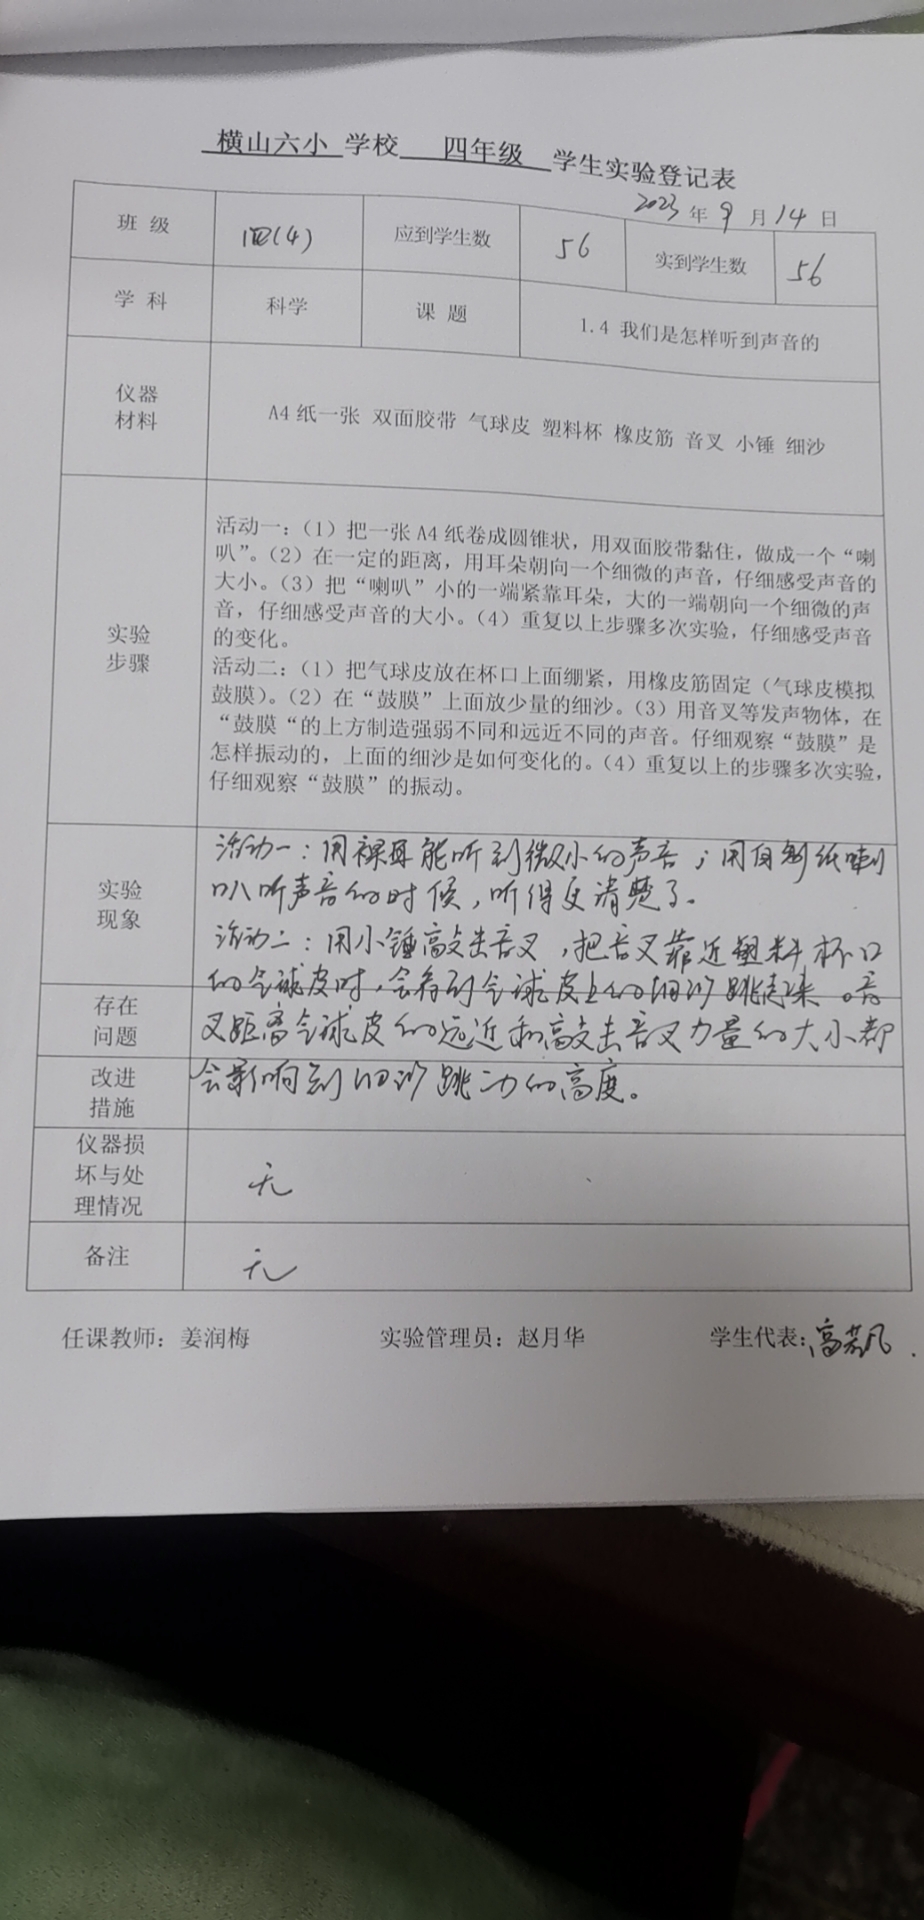 横山六小 学校 四年级 学生实验登记表
2023 年 9 月 14 日
班 级 四(4) 应到学生数 56 实到学生数 56
学 科 科学 课 题 1.4 我们是怎样听到声音的
仪器
材料
A4 纸一张 双面胶带 气球皮 塑料杯 橡皮筋 音叉 小锤 细沙
实验
步骤
活动一：（1）把一张 A4 纸卷成圆锥状，用双面胶带黏住，做成一个“喇
叭”。（2）在一定的距离，用耳朵朝向一个细微的声音，仔细感受声音的
大小。（3）把“喇叭”小的一端紧靠耳朵，大的一端朝向一个细微的声
音，仔细感受声音的大小。（4）重复以上步骤多次实验，仔细感受声音
的变化。
活动二：（1）把气球皮放在杯口上面绷紧，用橡皮筋固定（气球皮模拟
鼓膜）。（2）在“鼓膜”上面放少量的细沙。（3）用音叉等发声物体，在
“鼓膜“的上方制造强弱不同和远近不同的声音。仔细观察“鼓膜”是
怎样振动的，上面的细沙是如何变化的。（4）重复以上的步骤多次实验，
仔细观察“鼓膜”的振动。
实验
现象
活动一：用裸耳能听到微小的声音；用自制纸喇
叭听声音的时候，听得更清楚了。
活动二：用小锤敲击音叉，把音叉靠近塑料杯口
的气球皮时，会看到气球皮上的细沙跳起来。音
存在
问题
叉距离气球皮的远近和敲击音叉力量的大小都
改进
措施
会影响到细沙跳动的高度。
仪器损
坏与处
理情况
无
备注 无
任课教师：姜润梅 实验管理员：赵月华 学生代表：高若凡